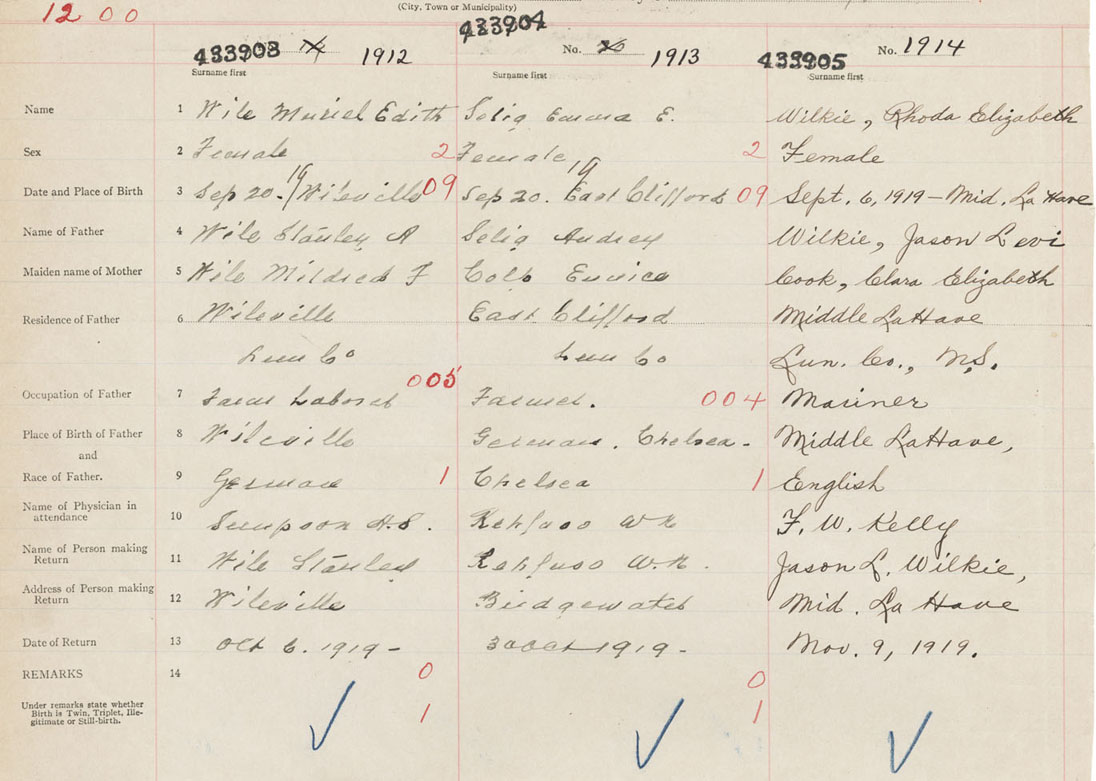 12 00
(City, Town or Municipality)
433903 1912
433904 No. 1913
433905 No. 1914
Surname first Surname first Surname first
Name 1 Wile Muriel Edith Selig Emma E. Wilkie, Rhoda Elizabeth
Sex 2 Female 2 Female 2 Female
19 19
Date and Place of Birth 3 Sep 20. / Wileville 09 Sep 20. East Clifford 09 Sept. 6, 1919 – Mid. La Have
Name of Father 4 Wile Stanley A Selig Audrey Wilkie, Jason Levi
Maiden name of Mother 5 Wile Mildred F Colp Eunice Cook, Clara Elizabeth
Residence of Father 6 Wileville East Clifford Middle LaHave
Lun Co Lun Co Lun. Co., N.S.
005
Occupation of Father 7 Farm Laborer Farmer. 004 Mariner
Place of Birth of Father 8 Wileville German. Chelsea - Middle LaHave,
and
Race of Father. 9 German 1 Chelsea 1 English
Name of Physician in
attendance 10 Simpson H.S. Rehfuss W N F. W. Kelly
Name of Person making
Return 11 Wile Stanley Rehfuss W.N. Jason L. Wilkie,
Address of Person making
Return 12 Wileville Bridgewater Mid. La Have
Date of Return 13 Oct 6. 1919 - 30 Oct 1919 - Nov. 9, 1919.
REMARKS 14 0 0
Under remarks state whether
Birth is Twin, Triplet, Ille-
gitimate or Still-birth. 1 1